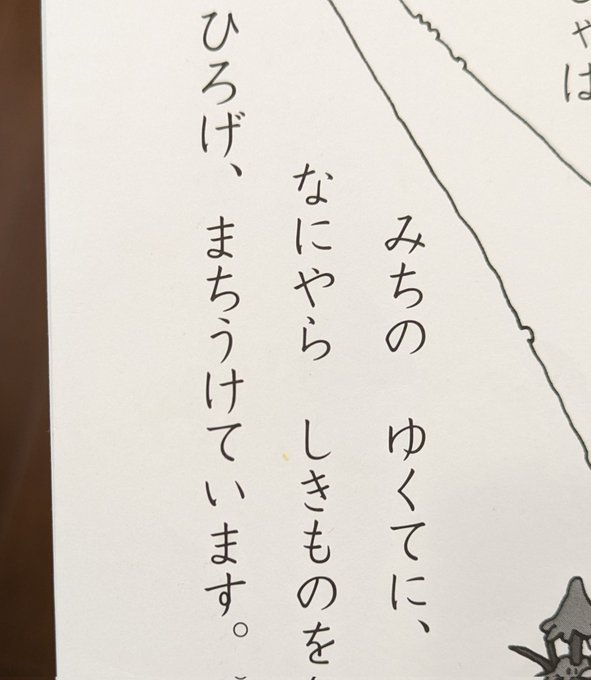 ゃは
みちの　ゆくてに、
なにやら　しきものを
ひろげ、　まちうけています。